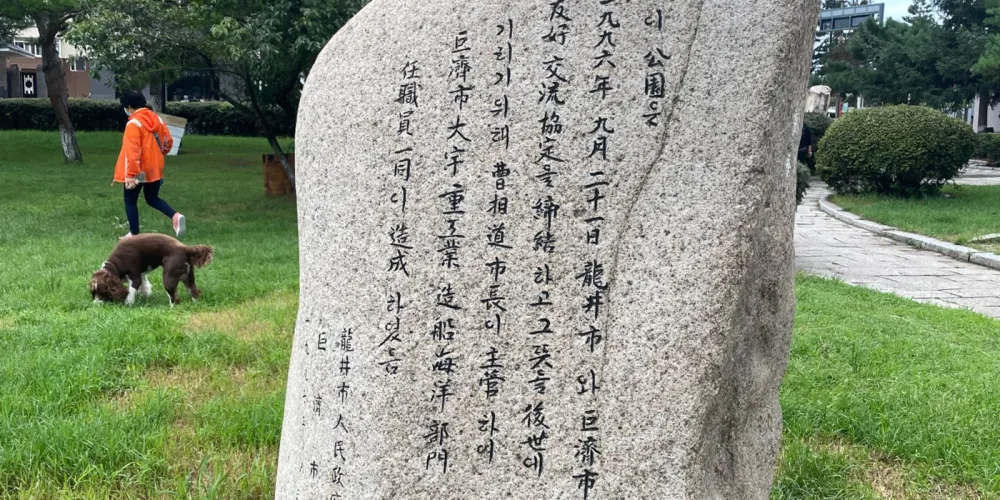 이 公園은
一九九六年 九月 二十一日 龍井市 와 巨濟市
友好 交流協定을 締結 하고 그 뜻을 後世에
기리기 위해 曹相道 市長이 主管 하여
巨濟市 大宇 重工業 造船海洋 部門
任職員一同이 造成 하였음
龍井市人民政府
巨濟市